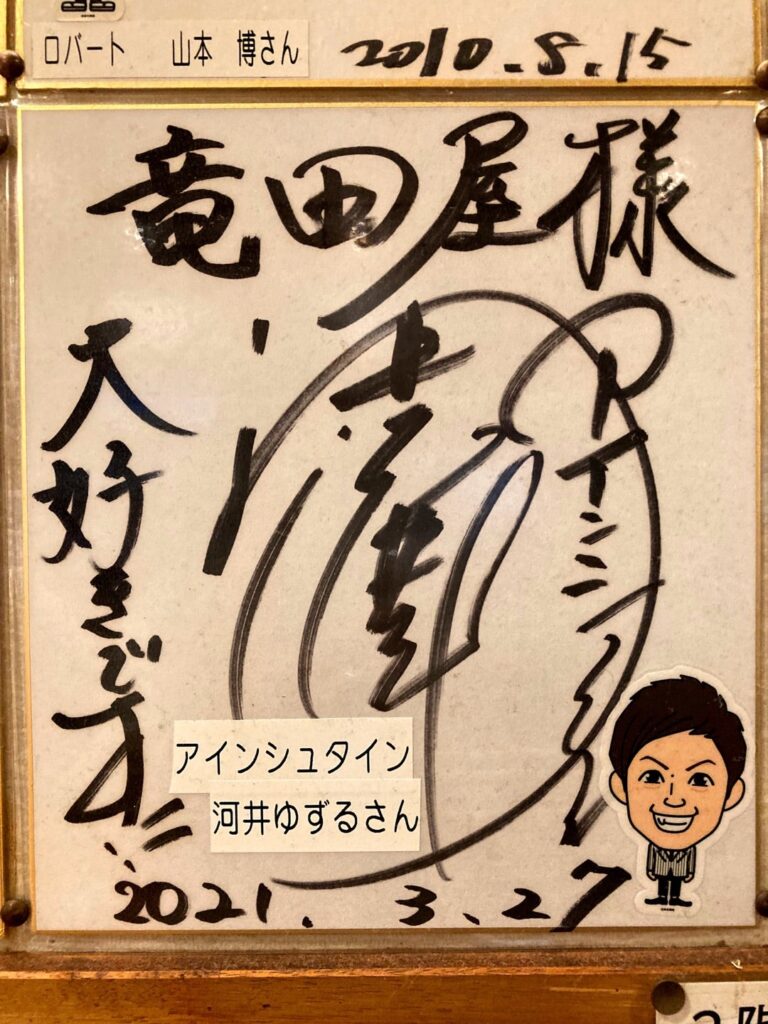 ロバート 山本 博さん
2010.8.15
竜田屋様
アインシュタイン
河井
大好きです!!
アインシュタイン
河井ゆずるさん
2021.3.27